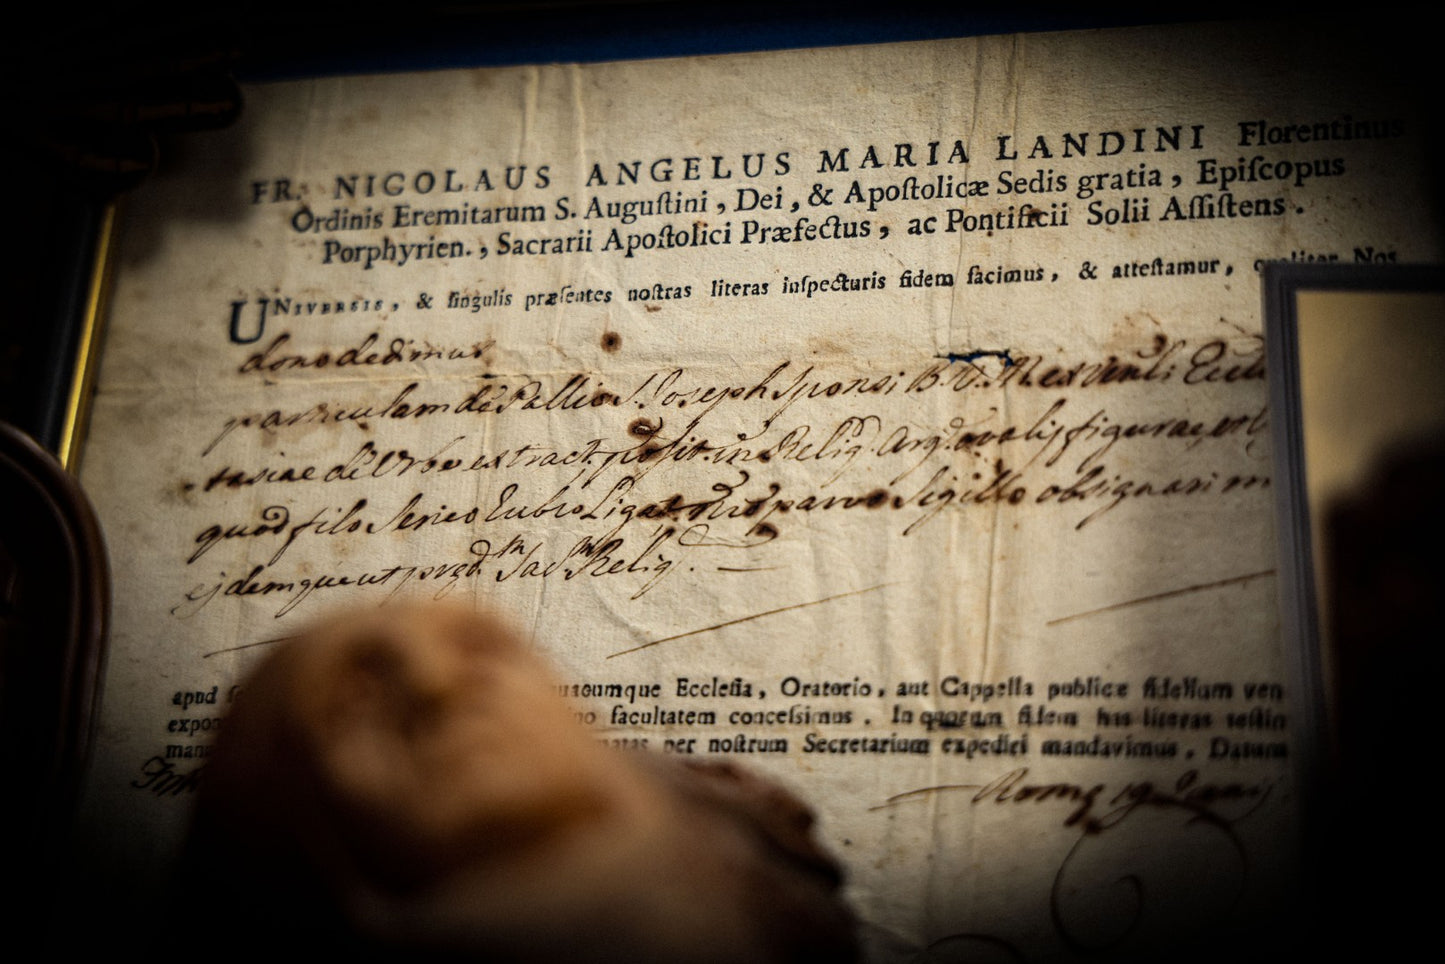 FR. NICOLAUS ANGELUS MARIA LANDINI Florentinus
Ordinis Eremitarum S. Auguſtini, Dei, & Apoſtolicæ Sedis gratia, Epiſcopus
Porphyrien., Sacrarii Apoſtolici Præfectus, ac Pontificii Solii Aſſiſtens.
UNIVERSIS, & ſingulis præſentes noſtras literas inſpecturis fidem facimus, & atteſtamur, qualiter Nos
dono dedimus
particulam de Pallio S. Joseph Sponsi B. V. M. ex
de Urbe extract. posit. in Reliq. Arg. ovalis figurae,
quod filo serico rubro Ligat. parvo Sigillo obsignari
ejdemque ut Reliq.
apud
uacumque Eccleſia, Oratorio, aut Cappella publicæ fidelium ven
expo no facultatem conceſſimus. In quorum fidem has literas teſtim
man natas per noſtrum Secretarium expediri mandavimus. Datum
Romę 19